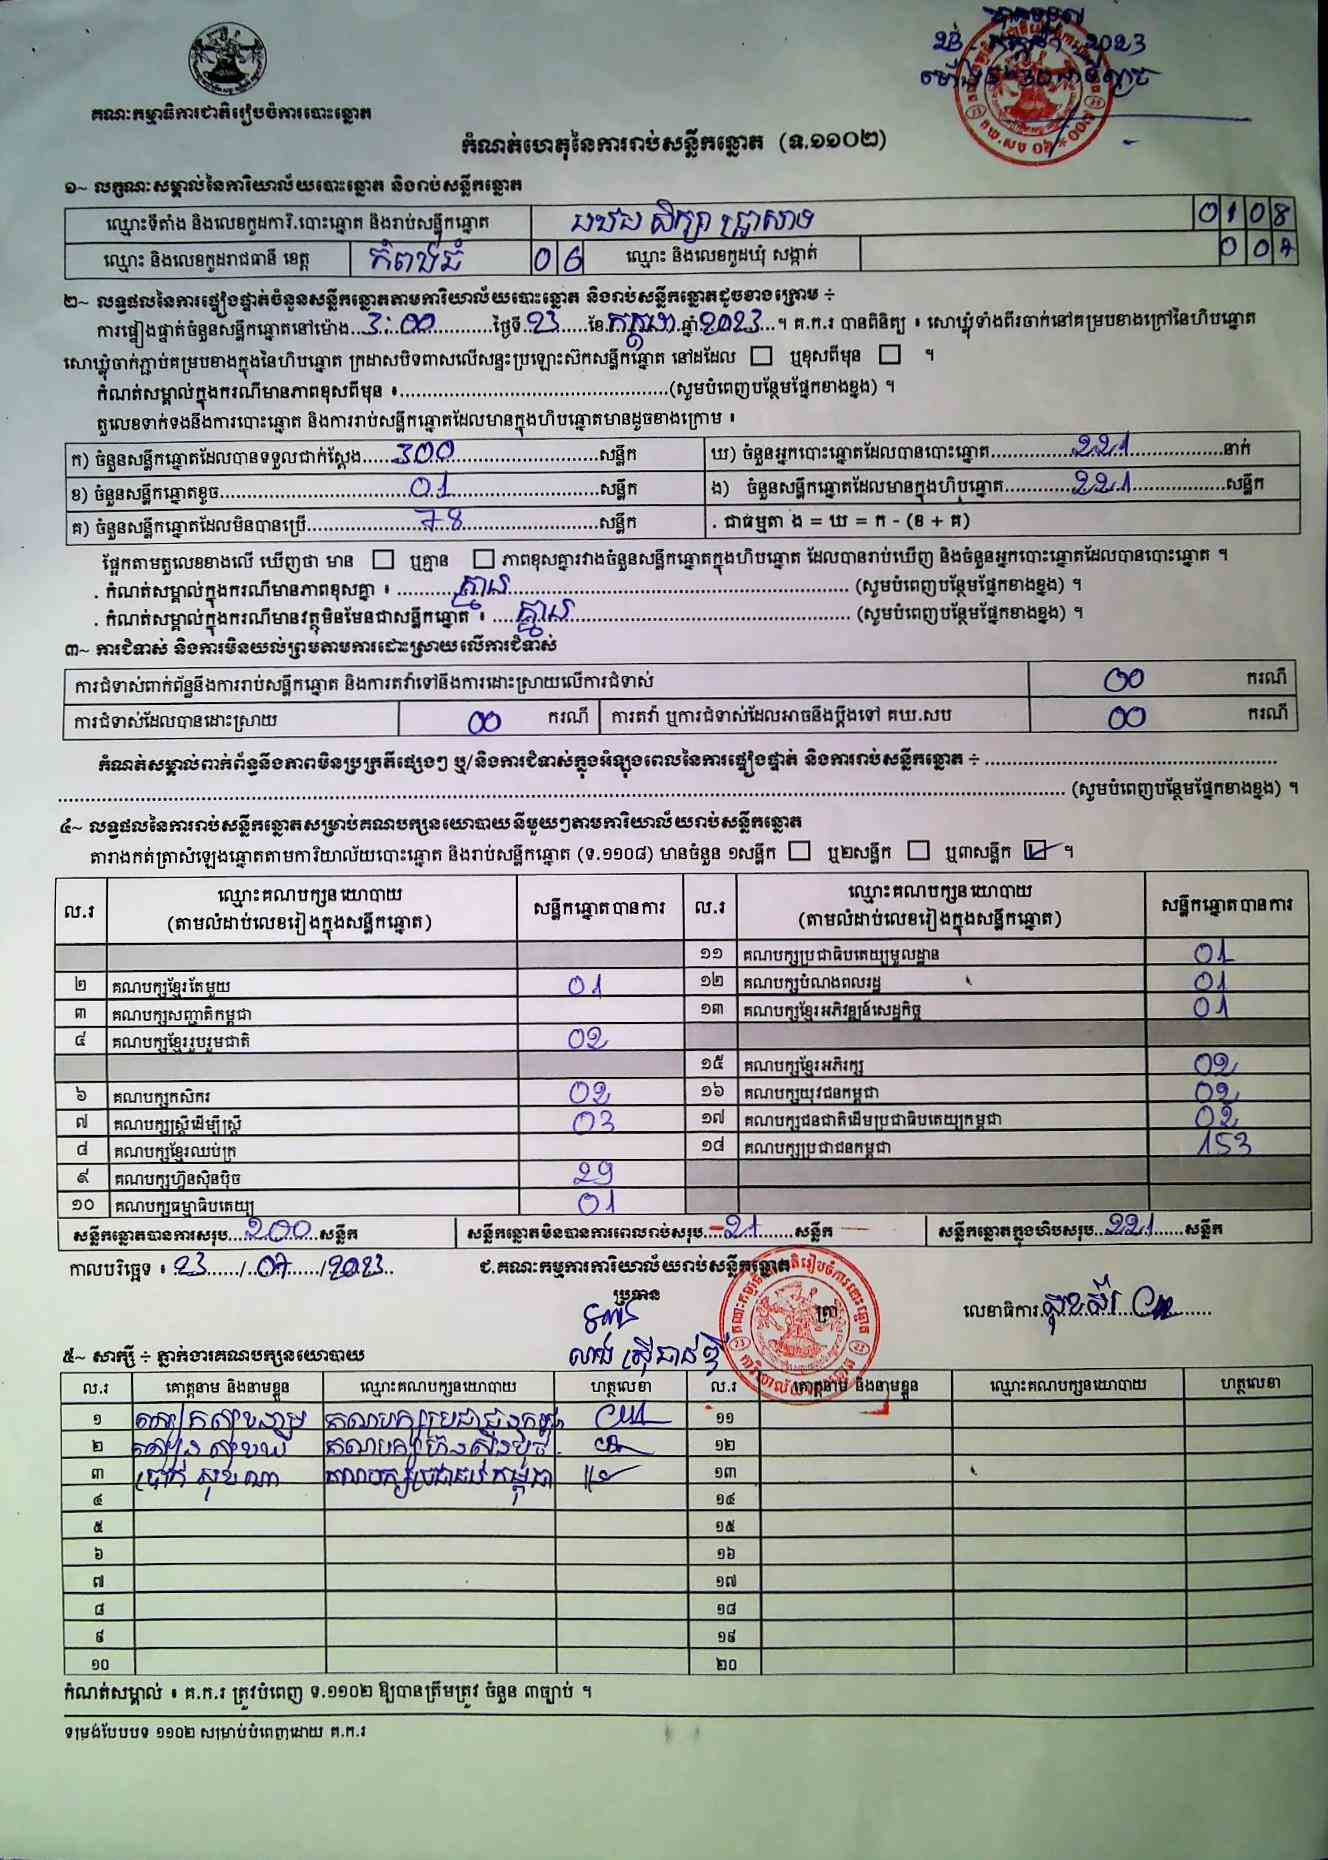 គណៈកម្មាធិការជាតិរៀបចំការបោះឆ្នោត
2023
កំណត់ហេតុនៃការរាប់សន្លឹកឆ្នោត (ទ.១១០២)
១~ លក្ខណៈសម្គាល់នៃការិយាល័យបោះឆ្នោត និងរាប់សន្លឹកឆ្នោត
ឈ្មោះទីតាំង និងលេខកូដការិ.បោះឆ្នោត និងរាប់សន្លឹកឆ្នោត 0108
ឈ្មោះ និងលេខកូដរាជធានី ខេត្ត កំពង់ធំ 06 ឈ្មោះ និងលេខកូដឃុំ សង្កាត់
២~ លទ្ធផលនៃការផ្ទៀងផ្ទាត់ចំនួនសន្លឹកឆ្នោតតាមការិយាល័យបោះឆ្នោត និងរាប់សន្លឹកឆ្នោតដូចខាងក្រោម ÷
ការផ្ទៀងផ្ទាត់ចំនួនសន្លឹកឆ្នោតនៅម៉ោង...3:00...ថ្ងៃទី...23...ខែ.កក្កដា.ឆ្នាំ.2023...។ គ.ក.រ បានពិនិត្យ ៖ សោឃ្លុំទាំងពីរចាក់នៅគម្របខាងក្រៅនៃហិបឆ្នោត
សោឃ្លុំចាក់ភ្ជាប់គម្របខាងក្នុងនៃហិបឆ្នោត ក្រដាសបិទពាសលើសន្ទះប្រឡោះស៊កសន្លឹកឆ្នោត នៅដដែល ☐ ឬខុសពីមុន ☐ ។
កំណត់សម្គាល់ក្នុងករណីមានភាពខុសពីមុន ៖...(សូមបំពេញបន្ថែមផ្នែកខាងខ្នង) ។
តួលេខទាក់ទងនឹងការបោះឆ្នោត និងការរាប់សន្លឹកឆ្នោតដែលមានក្នុងហិបឆ្នោតមានដូចខាងក្រោម ៖
ក) ចំនួនសន្លឹកឆ្នោតដែលបានទទួលជាក់ស្តែង...300...សន្លឹក ឃ) ចំនួនអ្នកបោះឆ្នោតដែលបានបោះឆ្នោត...221...នាក់
ខ) ចំនួនសន្លឹកឆ្នោតខូច...01...សន្លឹក ង) ចំនួនសន្លឹកឆ្នោតដែលមានក្នុងហិបឆ្នោត...221...សន្លឹក
គ) ចំនួនសន្លឹកឆ្នោតដែលមិនបានប្រើ...78...សន្លឹក . ជាធម្មតា ង = ឃ = ក - (ខ + គ)
ផ្អែកតាមតួលេខខាងលើ ឃើញថា មាន ☐ ឬគ្មាន ☐ ភាពខុសគ្នារវាងចំនួនសន្លឹកឆ្នោតក្នុងហិបឆ្នោត ដែលបានរាប់ឃើញ និងចំនួនអ្នកបោះឆ្នោតដែលបានបោះឆ្នោត ។
. កំណត់សម្គាល់ក្នុងករណីមានភាពខុសគ្នា ៖ ...គ្មាន... (សូមបំពេញបន្ថែមផ្នែកខាងខ្នង) ។
. កំណត់សម្គាល់ក្នុងករណីមានវត្ថុមិនមែនជាសន្លឹកឆ្នោត ៖ ...គ្មាន... (សូមបំពេញបន្ថែមផ្នែកខាងខ្នង) ។
៣~ ការជំទាស់ និងការមិនយល់ព្រមតាមការដោះស្រាយលើការជំទាស់
ការជំទាស់ពាក់ព័ន្ធនឹងការរាប់សន្លឹកឆ្នោត និងការតវ៉ាទៅនឹងការដោះស្រាយលើការជំទាស់ 00 ករណី
ការជំទាស់ដែលបានដោះស្រាយ 00 ករណី ការតវ៉ា ឬការជំទាស់ដែលអាចនឹងប្តឹងទៅ គឃ.សប 00 ករណី
កំណត់សម្គាល់ពាក់ព័ន្ធនឹងភាពមិនប្រក្រតីផ្សេងៗ ឬ/និងការជំទាស់ក្នុងអំឡុងពេលនៃការផ្ទៀងផ្ទាត់ និងការរាប់សន្លឹកឆ្នោត ÷ ...
... (សូមបំពេញបន្ថែមផ្នែកខាងខ្នង) ។
៤~ លទ្ធផលនៃការរាប់សន្លឹកឆ្នោតសម្រាប់គណបក្សនយោបាយនីមួយៗតាមការិយាល័យរាប់សន្លឹកឆ្នោត
តារាងកត់ត្រាសំឡេងឆ្នោតតាមការិយាល័យបោះឆ្នោត និងរាប់សន្លឹកឆ្នោត (ទ.១១០៨) មានចំនួន ១សន្លឹក ☐ ឬ២សន្លឹក ☐ ឬ៣សន្លឹក ☑ ។
ល.រ ឈ្មោះគណបក្សនយោបាយ (តាមលំដាប់លេខរៀងក្នុងសន្លឹកឆ្នោត) សន្លឹកឆ្នោតបានការ ល.រ ឈ្មោះគណបក្សនយោបាយ (តាមលំដាប់លេខរៀងក្នុងសន្លឹកឆ្នោត) សន្លឹកឆ្នោតបានការ
១១ គណបក្សប្រជាធិបតេយ្យមូលដ្ឋាន 01
២ គណបក្សខ្មែរតែមួយ 01 ១២ គណបក្សបំណងពលរដ្ឋ 01
៣ គណបក្សសញ្ជាតិកម្ពុជា ១៣ គណបក្សខ្មែរអភិវឌ្ឍន៍សេដ្ឋកិច្ច 01
៤ គណបក្សខ្មែររួបរួមជាតិ 02
១៥ គណបក្សខ្មែរអភិរក្ស 02
៦ គណបក្សកសិករ 02 ១៦ គណបក្សយុវជនកម្ពុជា 02
៧ គណបក្សស្ត្រីដើម្បីស្ត្រី 03 ១៧ គណបក្សជនជាតិដើមប្រជាធិបតេយ្យកម្ពុជា 02
៨ គណបក្សខ្មែរឈប់ក្រ ១៨ គណបក្សប្រជាជនកម្ពុជា 153
៩ គណបក្សហ៊្វុនស៊ិនប៉ិច 29
១០ គណបក្សធម្មាធិបតេយ្យ 01
សន្លឹកឆ្នោតបានការសរុប...200...សន្លឹក សន្លឹកឆ្នោតមិនបានការពេលរាប់សរុប...21...សន្លឹក សន្លឹកឆ្នោតក្នុងហិបសរុប...221...សន្លឹក
កាលបរិច្ឆេទ ៖ 23..../..07..../2023.. ជ.គណៈកម្មការការិយាល័យរាប់សន្លឹកឆ្នោត
ប្រធាន ត្រា លេខាធិការ
៥~ សាក្សី ÷ ភ្នាក់ងារគណបក្សនយោបាយ
ល.រ គោត្តនាម និងនាមខ្លួន ឈ្មោះគណបក្សនយោបាយ ហត្ថលេខា ល.រ គោត្តនាម និងនាមខ្លួន ឈ្មោះគណបក្សនយោបាយ ហត្ថលេខា
១ ១១
២ ១២
៣ គណបក្សប្រជាជនកម្ពុជា ១៣
៤ ១៤
៥ ១៥
៦ ១៦
៧ ១៧
៨ ១៨
៩ ១៩
១០ ២០
កំណត់សម្គាល់ ៖ គ.ក.រ ត្រូវបំពេញ ទ.១១០២ ឱ្យបានត្រឹមត្រូវ ចំនួន ៣ច្បាប់ ។
ទម្រង់បែបបទ ១១០២ សម្រាប់បំពេញដោយ គ.ក.រ